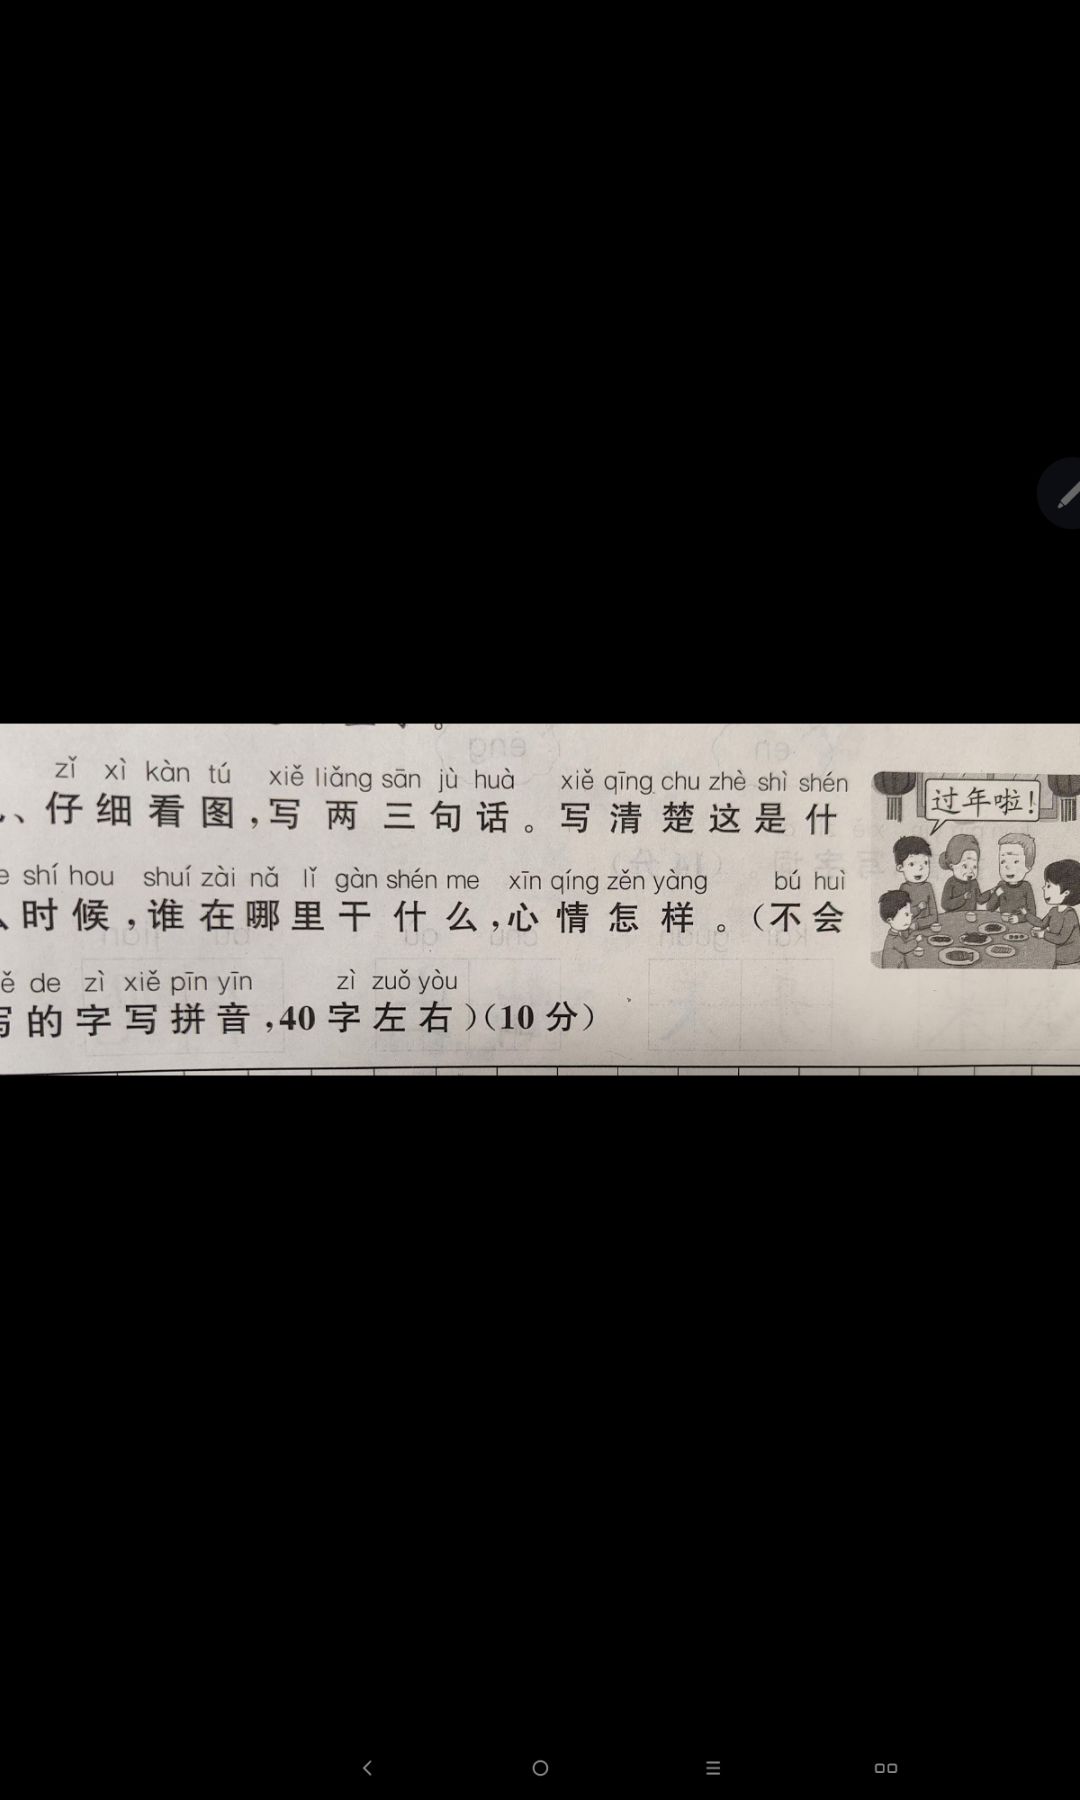 zǐ xì kàn tú xiě liǎng sān jù huà xiě qīng chu zhè shì shén
、仔细看图,写两三句话。写清楚这是什
e shí hou shuí zài nǎ lǐ gàn shén me xīn qíng zěn yàng bú huì
时候,谁在哪里干什么,心情怎样。(不会
ě de zì xiě pīn yīn zì zuǒ yòu
的字写拼音,40字左右)(10分)
过年啦!